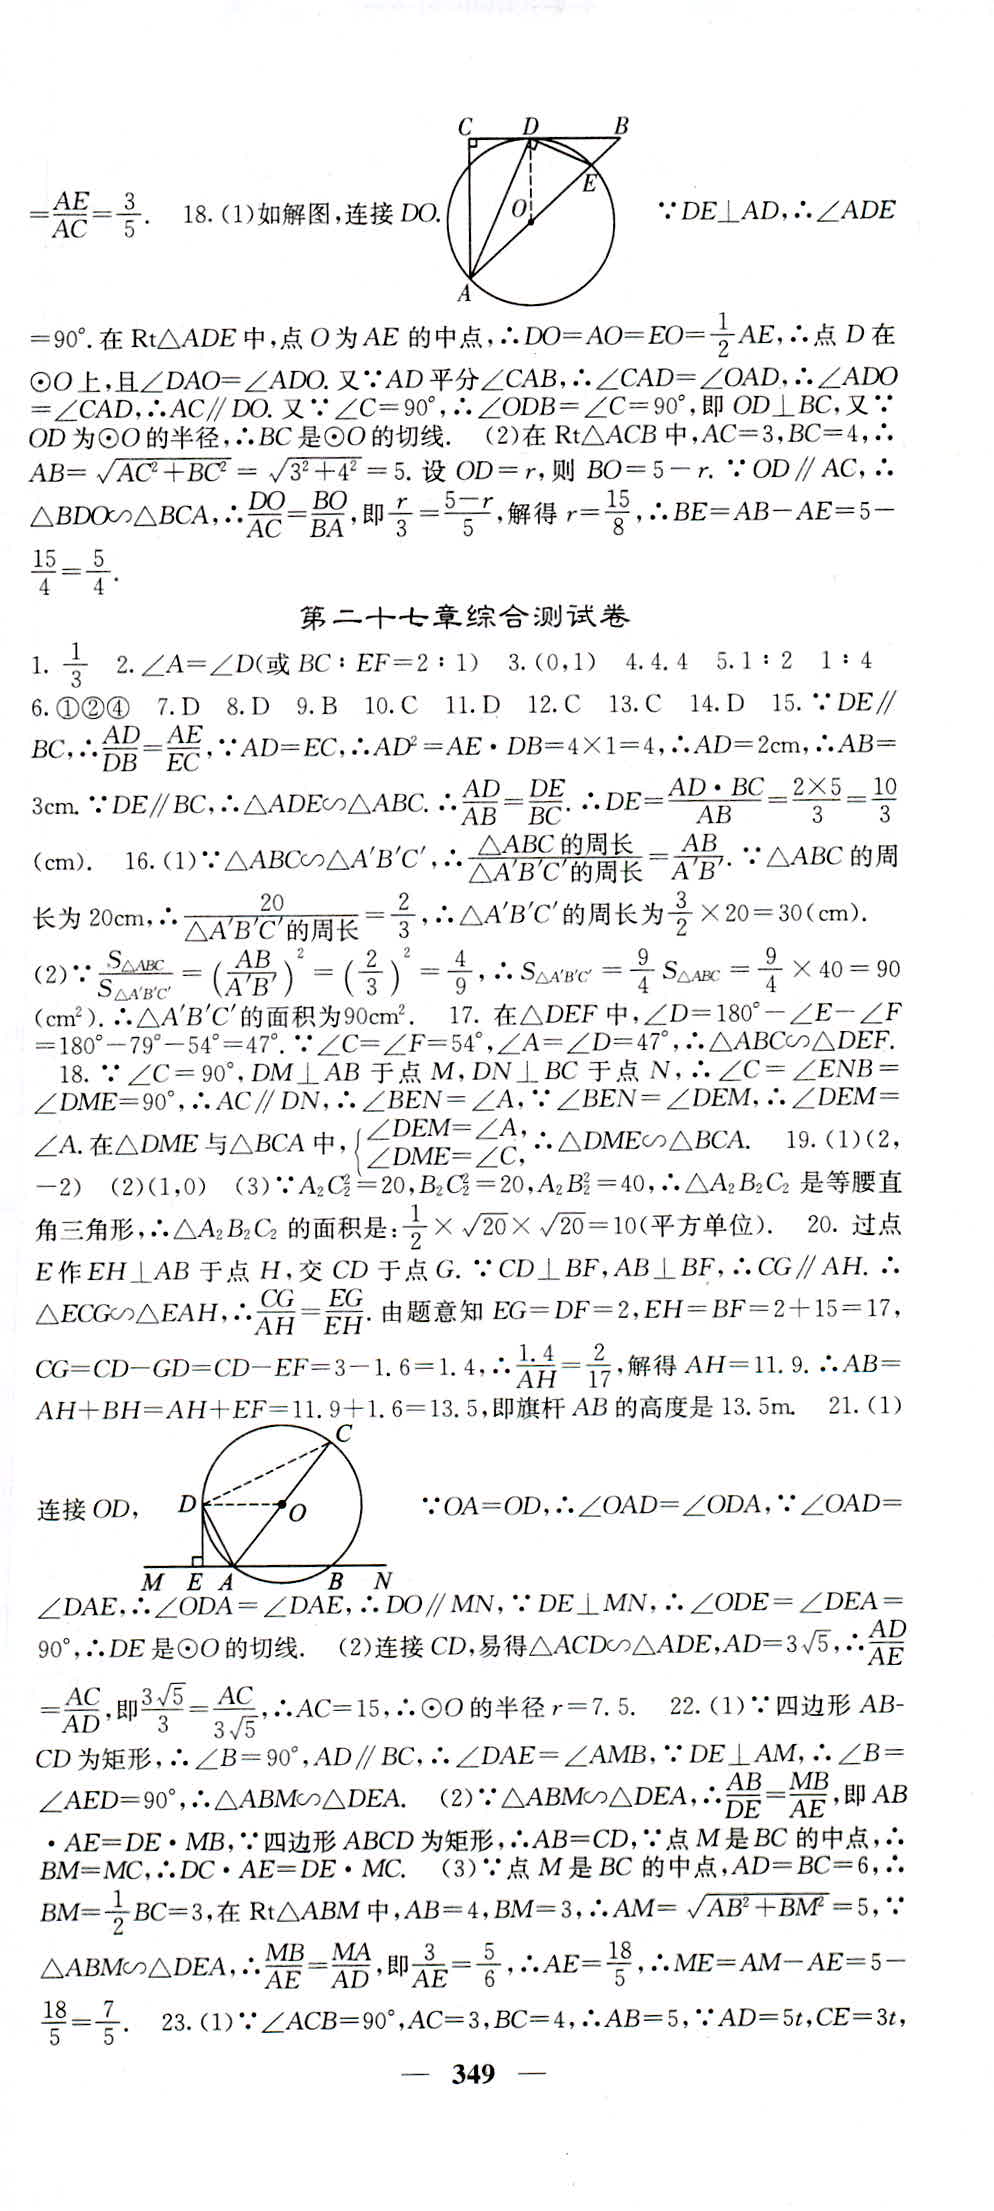 C D B
=AE/AC=3/5. 18.(1)如解图,连接DO. O E A ∵DE⊥AD,∴∠ADE
=90°.在Rt△ADE中,点O为AE的中点,∴DO=AO=EO=1/2AE,∴点D在
⊙O上,且∠DAO=∠ADO.又∵AD平分∠CAB,∴∠CAD=∠OAD,∴∠ADO
=∠CAD,∴AC∥DO.又∵∠C=90°,∴∠ODB=∠C=90°,即OD⊥BC,又∵
OD为⊙O的半径,∴BC是⊙O的切线. (2)在Rt△ACB中,AC=3,BC=4,∴
AB=√(AC²+BC²)=√(3²+4²)=5.设OD=r,则BO=5-r.∵OD∥AC,∴
△BDO∽△BCA,∴DO/AC=BO/BA,即r/3=(5-r)/5,解得r=15/8,∴BE=AB-AE=5-
15/4=5/4.
第二十七章综合测试卷
1.1/3 2.∠A=∠D(或BC∶EF=2∶1) 3.(0,1) 4.4.4 5.1∶2 1∶4
6.①②④ 7.D 8.D 9.B 10.C 11.D 12.C 13.C 14.D 15.∵DE∥
BC,∴AD/DB=AE/EC,∵AD=EC,∴AD²=AE·DB=4×1=4,∴AD=2cm,∴AB=
3cm.∵DE∥BC,∴△ADE∽△ABC.∴AD/AB=DE/BC.∴DE=AD·BC/AB=2×5/3=10/3
(cm). 16.(1)∵△ABC∽△A′B′C′,∴△ABC的周长/△A′B′C′的周长=AB/A′B′.∵△ABC的周
长为20cm,∴20/△A′B′C′的周长=2/3,∴△A′B′C′的周长为3/2×20=30(cm).
(2)∵S△ABC/S△A′B′C′=(AB/A′B′)²=(2/3)²=4/9,∴S△A′B′C′=9/4S△ABC=9/4×40=90
(cm²).∴△A′B′C′的面积为90cm². 17.在△DEF中,∠D=180°-∠E-∠F
=180°-79°-54°=47°.∵∠C=∠F=54°,∠A=∠D=47°,∴△ABC∽△DEF.
18.∵∠C=90°,DM⊥AB于点M,DN⊥BC于点N,∴∠C=∠ENB=
∠DME=90°,∴AC∥DN,∴∠BEN=∠A,∵∠BEN=∠DEM,∴∠DEM=
∠A.在△DME与△BCA中,{∠DEM=∠A, ∠DME=∠C,∴△DME∽△BCA. 19.(1)(2,
-2) (2)(1,0) (3)∵A₂C₂²=20,B₂C₂²=20,A₂B₂²=40,∴△A₂B₂C₂是等腰直
角三角形,∴△A₂B₂C₂的面积是:1/2×√20×√20=10(平方单位). 20.过点
E作EH⊥AB于点H,交CD于点G.∵CD⊥BF,AB⊥BF,∴CG∥AH.∴
△ECG∽△EAH,∴CG/AH=EG/EH.由题意知EG=DF=2,EH=BF=2+15=17,
CG=CD-GD=CD-EF=3-1.6=1.4,∴1.4/AH=2/17,解得AH=11.9.∴AB=
AH+BH=AH+EF=11.9+1.6=13.5,即旗杆AB的高度是13.5m. 21.(1)
C
连接OD, D O ∵OA=OD,∴∠OAD=∠ODA,∵∠OAD=
M E A B N
∠DAE,∴∠ODA=∠DAE,∴DO∥MN,∵DE⊥MN,∴∠ODE=∠DEA=
90°,∴DE是⊙O的切线. (2)连接CD,易得△ACD∽△ADE,AD=3√5,∴AD/AE
=AC/AD,即3√5/3=AC/3√5,∴AC=15,∴⊙O的半径r=7.5. 22.(1)∵四边形AB-
CD为矩形,∴∠B=90°,AD∥BC,∴∠DAE=∠AMB,∵DE⊥AM,∴∠B=
∠AED=90°,∴△ABM∽△DEA. (2)∵△ABM∽△DEA,∴AB/DE=MB/AE,即AB
·AE=DE·MB,∵四边形ABCD为矩形,∴AB=CD,∵点M是BC的中点,∴
BM=MC,∴DC·AE=DE·MC. (3)∵点M是BC的中点,AD=BC=6,∴
BM=1/2BC=3,在Rt△ABM中,AB=4,BM=3,∴AM=√(AB²+BM²)=5,∵
△ABM∽△DEA,∴MB/AE=MA/AD,即3/AE=5/6,∴AE=18/5,∴ME=AM-AE=5-
18/5=7/5. 23.(1)∵∠ACB=90°,AC=3,BC=4,∴AB=5,∵AD=5t,CE=3t,
— 349 —